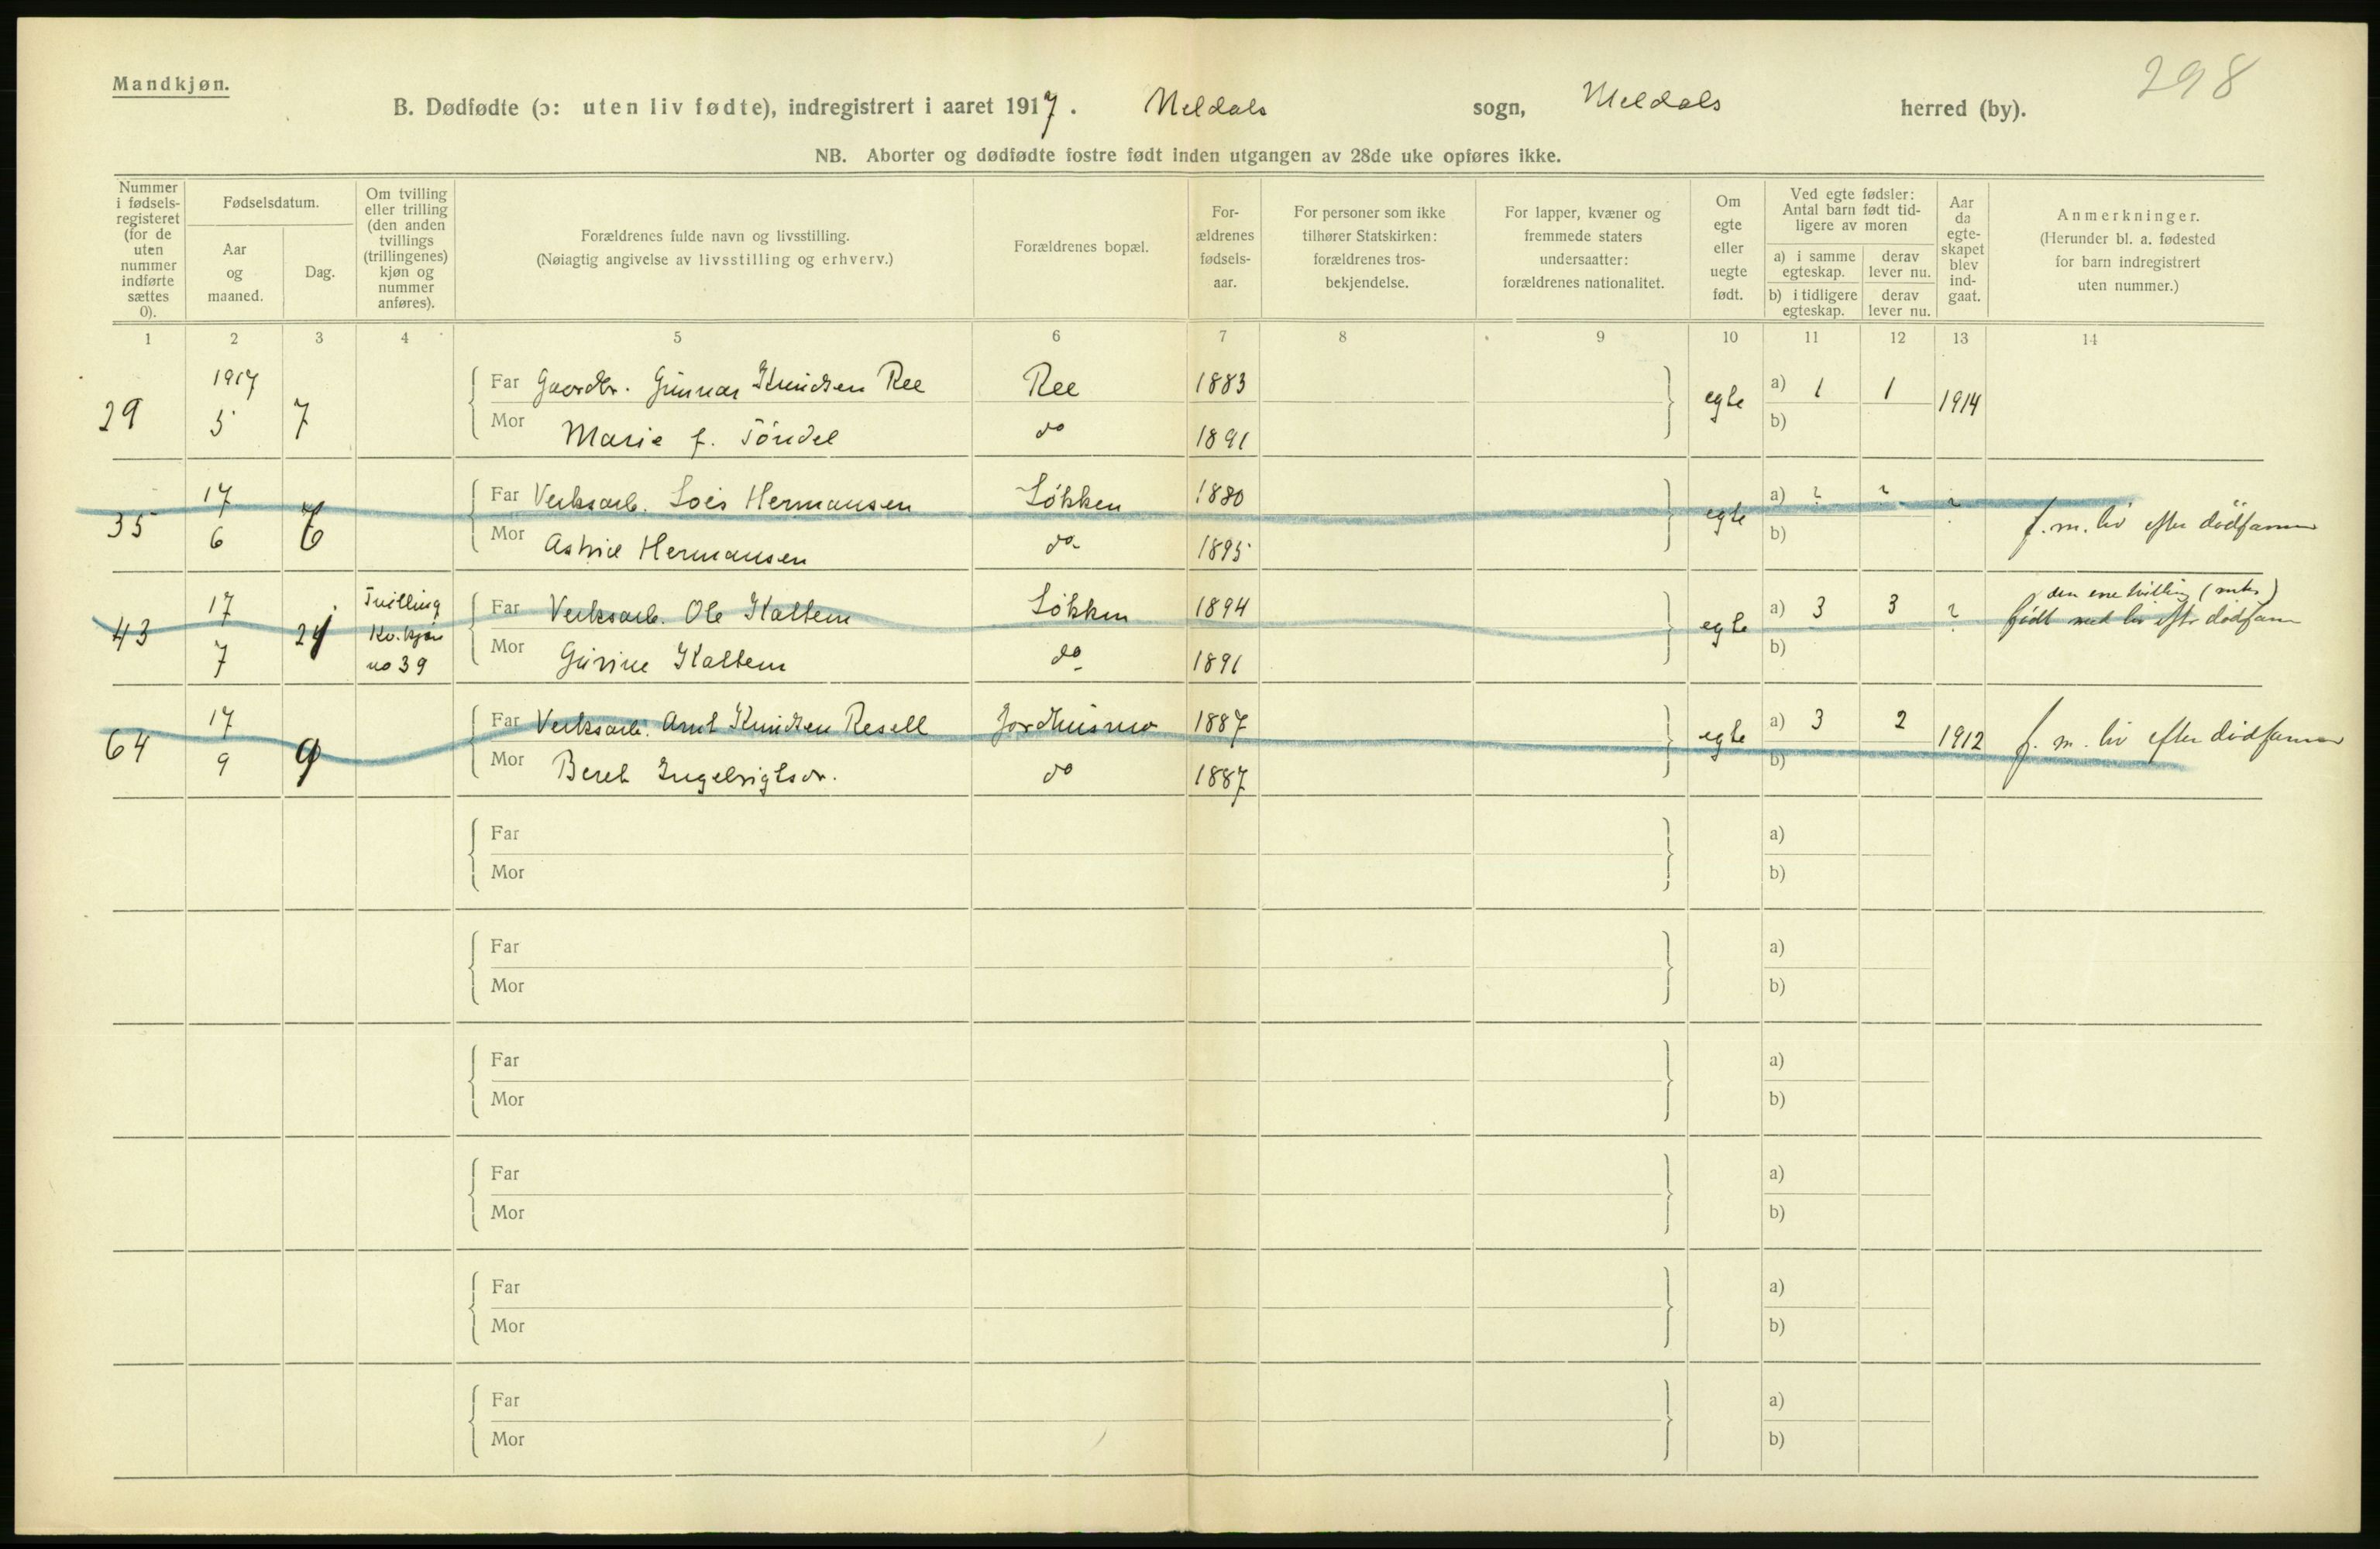 298
Mandkjøn.
B. Dødfødte (ɔ: uten liv fødte), indregistrert i aaret 1917. Meldals sogn, Meldals herred (by).
NB. Aborter og dødfødte fostre født inden utgangen av 28de uke opføres ikke.
Nummer i fødsels-registeret (for de uten nummer indførte sættes 0).
Fødselsdatum.
Aar og maaned.
Dag.
Om tvilling eller trilling (den anden tvillings (trillingenes) kjøn og nummer anføres).
Forældrenes fulde navn og livsstilling.
(Nøiagtig angivelse av livsstilling og erhverv.)
Forældrenes bopæl.
For-ældrenes fødsels-aar.
For personer som ikke tilhører Statskirken: forældrenes tros-bekjendelse.
For lapper, kvæner og fremmede staters undersaatter: forældrenes nationalitet.
Om egte eller uegte født.
Ved egte fødsler: Antal barn født tid-ligere av moren
a) i samme egteskap. derav lever nu.
b) i tidligere egteskap. derav lever nu.
Aar da egte-skapet blev ind-gaat.
Anmerkninger.
(Herunder bl. a. fødested for barn indregistrert uten nummer.)
1 2 3 4 5 6 7 8 9 10 11 12 13 14
29 1917 5 7 Far Gaardbr. Gunnar Knudsen Ree Ree 1883 egte a) 1 1 1914
Mor Marie f. Töndel do 1891 b)
35 17 6 6 Far Verksarb. Hermansen Lökken 1880 egte a) ? ? ? f. m. liv efter dödsanm
Mor Astrid Hermansen do 1895 b)
43 17 7 24 Tvilling Kv.kjön no 39 Far Verksarb. Ole Kaltem Lökken 1894 egte a) 3 3 ? den ene tvilling
født med liv eftr dødsanm
Mor Gurine Kaltem do 1891 b)
64 17 9 9 Far Verksarb. Arnt Knudsen Resell Jordhusmo 1887 egte a) 3 2 1912 f. m. liv efter dødsanm
Mor Beret Ingebrigtsdr. do 1887 b)
Far a)
Mor b)
Far a)
Mor b)
Far a)
Mor b)
Far a)
Mor b)
Far a)
Mor b)
Far a)
Mor b)